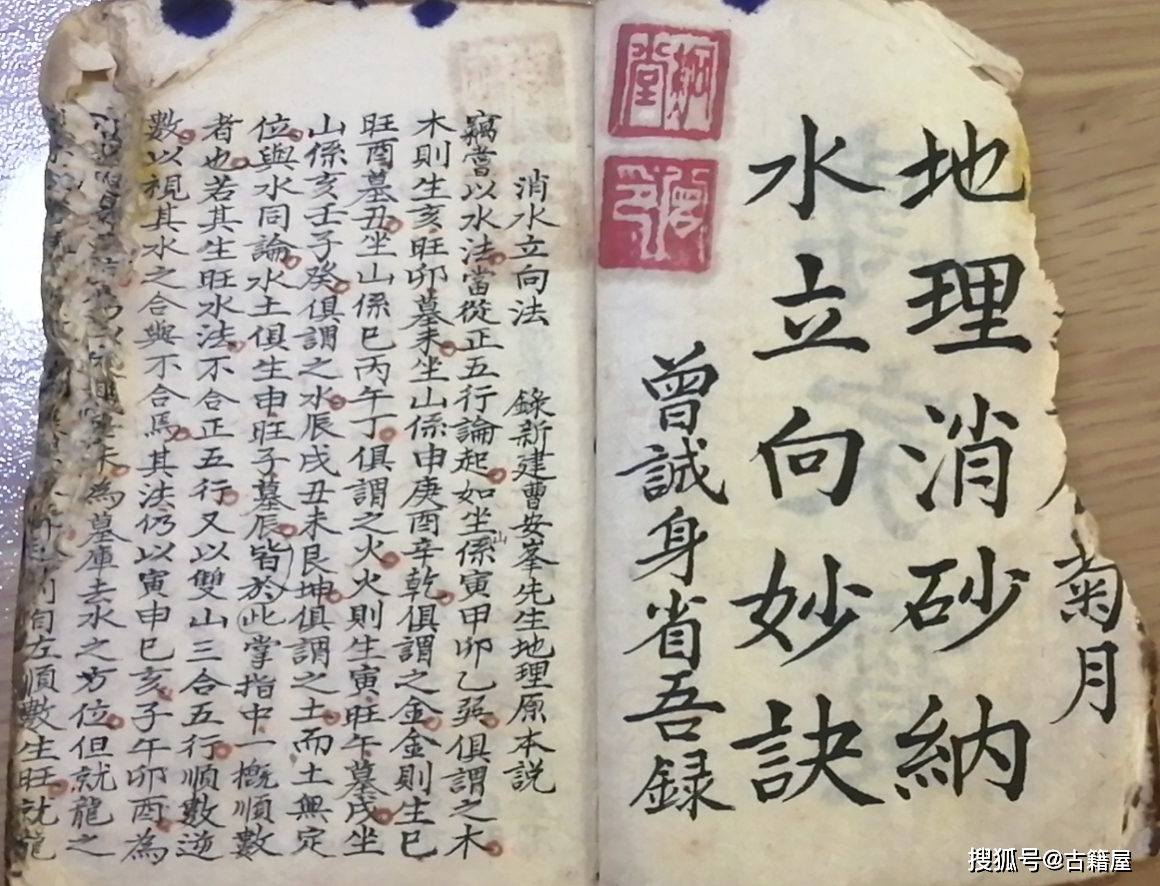 菊月
地理消砂納
水立向妙訣
曾誠身省吾録
消水立向法 錄新建曹安峯先生地理原本説
竊嘗以水法當從正五行論起如坐山係寅甲卯乙巽俱謂之木
木則生亥旺卯墓未坐山係申庚酉辛乾俱謂之金金則生巳
旺酉墓丑坐山係巳丙午丁俱謂之火火則生寅旺午墓戌坐
山係亥壬子癸俱謂之水辰戌丑未艮坤俱謂之土而土無定
位與水同論水土俱生申旺子墓辰皆於此掌指中一概順數
者也若其生旺水法不合正五行又以雙山三合五行順數逆
數以視其水之合與不合焉其法仍以寅申巳亥子午卯酉為
未為墓庫去水之方位但就龍之
自左順數生旺
搜狐号@古籍屋